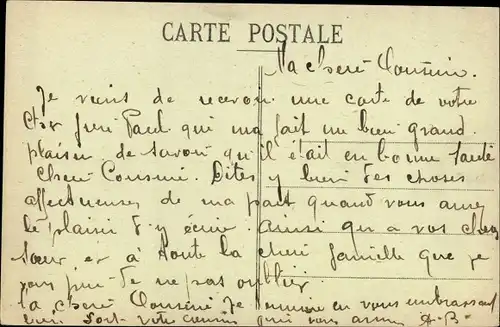 CARTE POSTALE
Ma cheré Cousine.
Je viens de recevoir une carte de votre
cher frere Paul qui ma fait un bien grand
plaisir de savoir qu'il était en bonne santé
cheré Cousine. Dites y bien des choses
affectueuses de ma part quand vous aurez
le plaisir d'y écrire. Ainsi qu a vos cheres
sœur et à toute la cheré famille que je
vous prie de ne pas oublier
la cheré Cousine Je termine en vous embrassant
bien fort votre cousin qui vous aime A-B